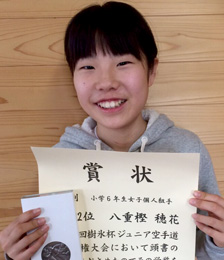 賞状
小学6年生女子個人組手
2位 八重樫 穂花
回樹氷杯ジュニア空手道
権大会において頭書の